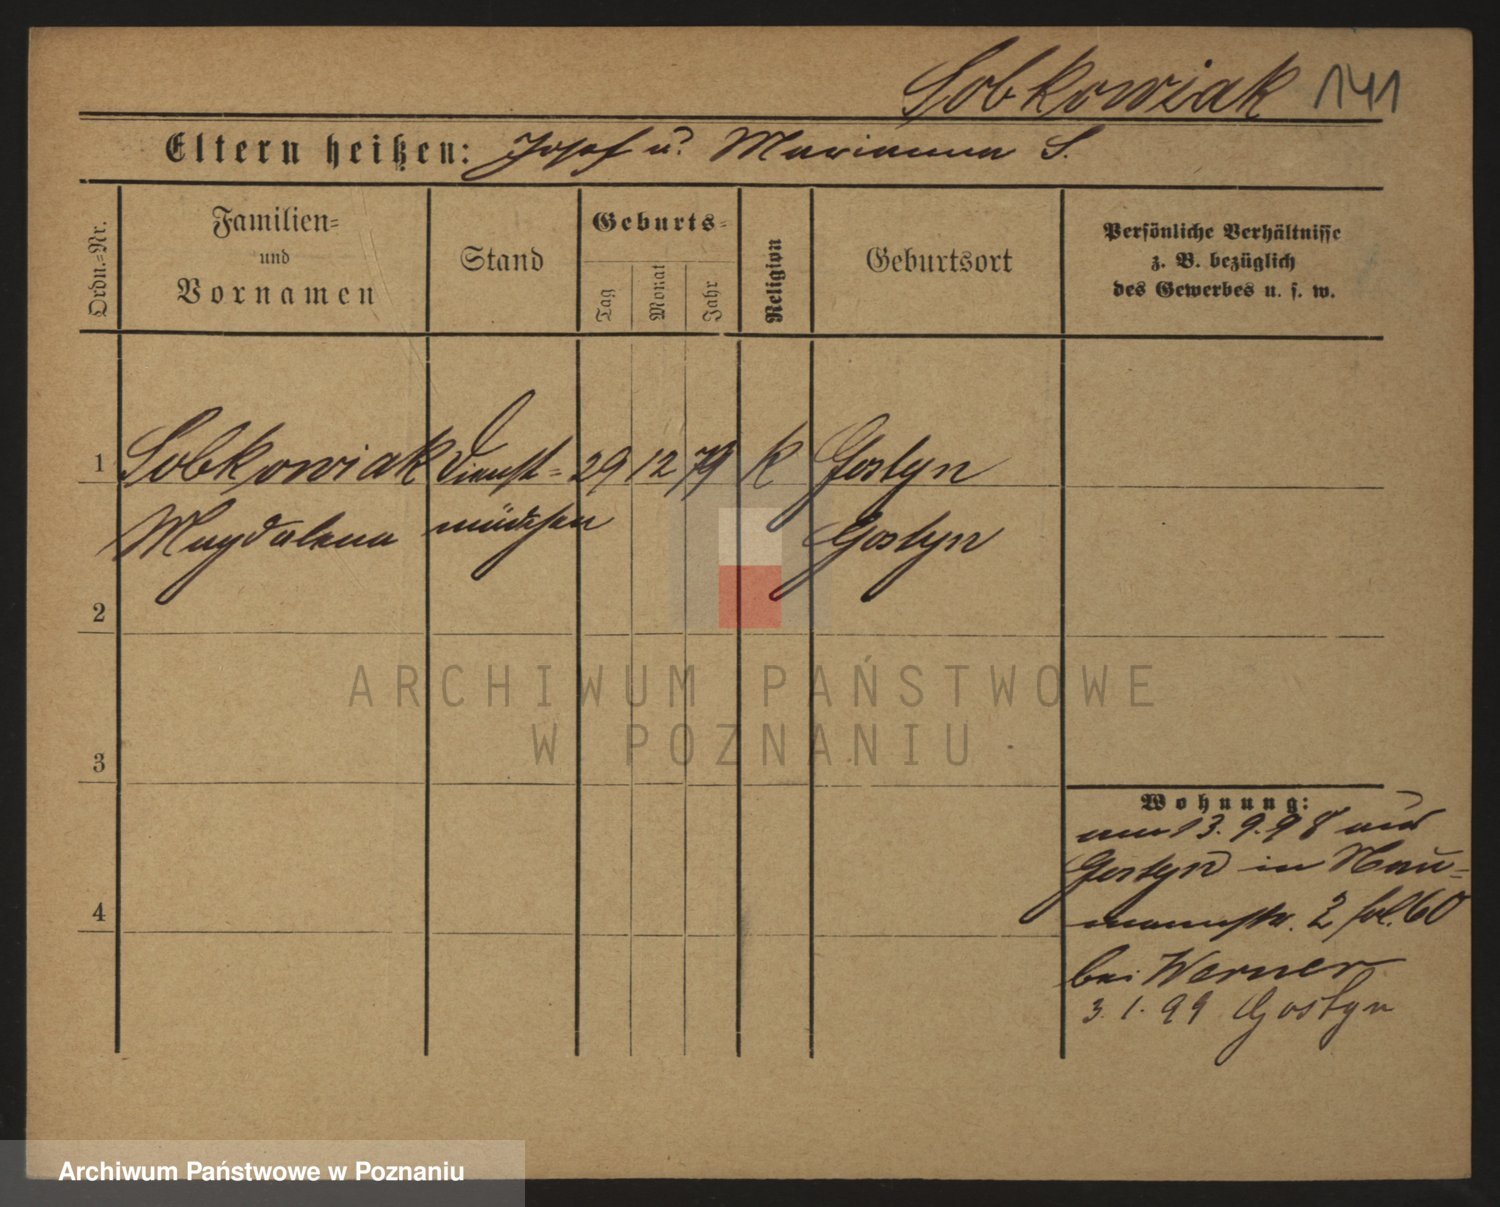 Sobkowiak 141
Eltern heißen: Josef u. Marianna S.
Ordn.-Nr.
Familien-
und
Vornamen
Stand
Geburts-
Tag
Monat
Jahr
Religion
Geburtsort
Persönliche Verhältnisse
z. B. bezüglich
des Gewerbes u. s. w.
1 Sobkowiak Dienst- 29 12 79 K Gostyn
Magdalena mädchen Gostyn
2
3
4
Wohnung:
am 13.9.98 aus
Gostyn in Nau-
mannstr. 2 fol. 60
bei Werner
3.1.99 Gostyn
ARCHIWUM PAŃSTWOWE
W POZNANIU
Archiwum Państwowe w Poznaniu